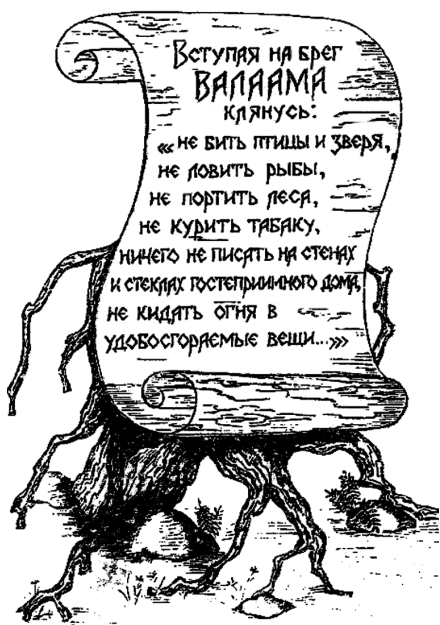 Вступая на брег
ВАЛААМА
клянусь:
«не бить птицы и зверя,
не ловить рыбы,
не портить леса,
не курить табаку,
ничего не писать на стенах
и стеклах гостеприимного дома,
не кидать огня в
удобосгораемые вещи...»